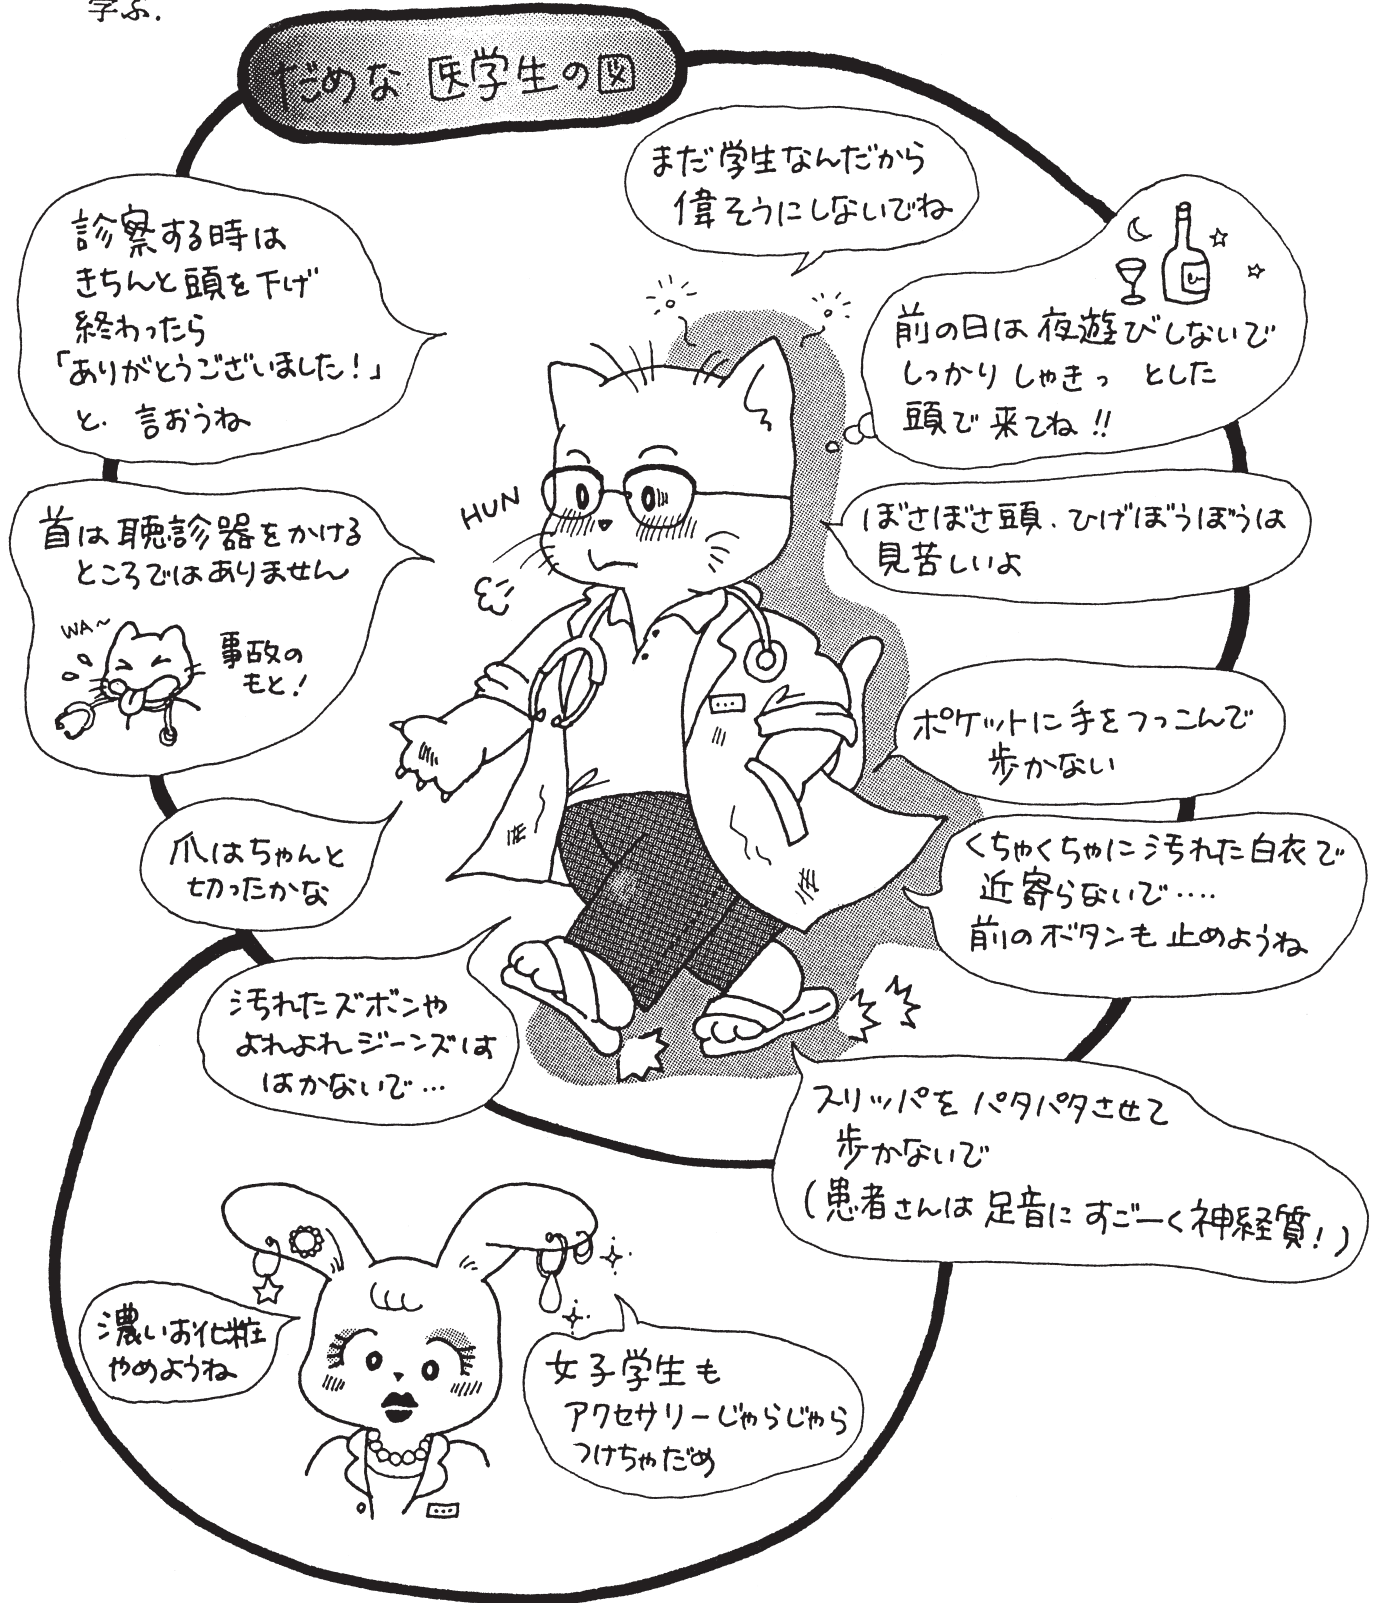 学ぶ.
だめな 医学生の図
まだ学生なんだから
偉そうにしないでね
診察する時は
きちんと頭を下げ
終わったら
「ありがとうございました!」
と. 言おうね
前の日は夜遊びしないで
しっかりしゃきっ とした
頭で来てね!!
HUN
首は聴診器をかける
ところではありません
WA~
事故の
もと!
ぼさぼさ頭. ひげぼうぼうは
見苦しいよ
ポケットに手をつっこんで
歩かない
爪はちゃんと
切ったかな
くちゃくちゃに汚れた白衣で
近寄らないで‥‥
前のボタンも止めようね
汚れたズボンや
よれよれジーンズは
はかないで…
スリッパをパタパタさせて
歩かないで
(患者さんは足音にすごーく神経質!)
濃いお化粧
やめようね
女子学生も
アクセサリーじゃらじゃら
つけちゃだめ